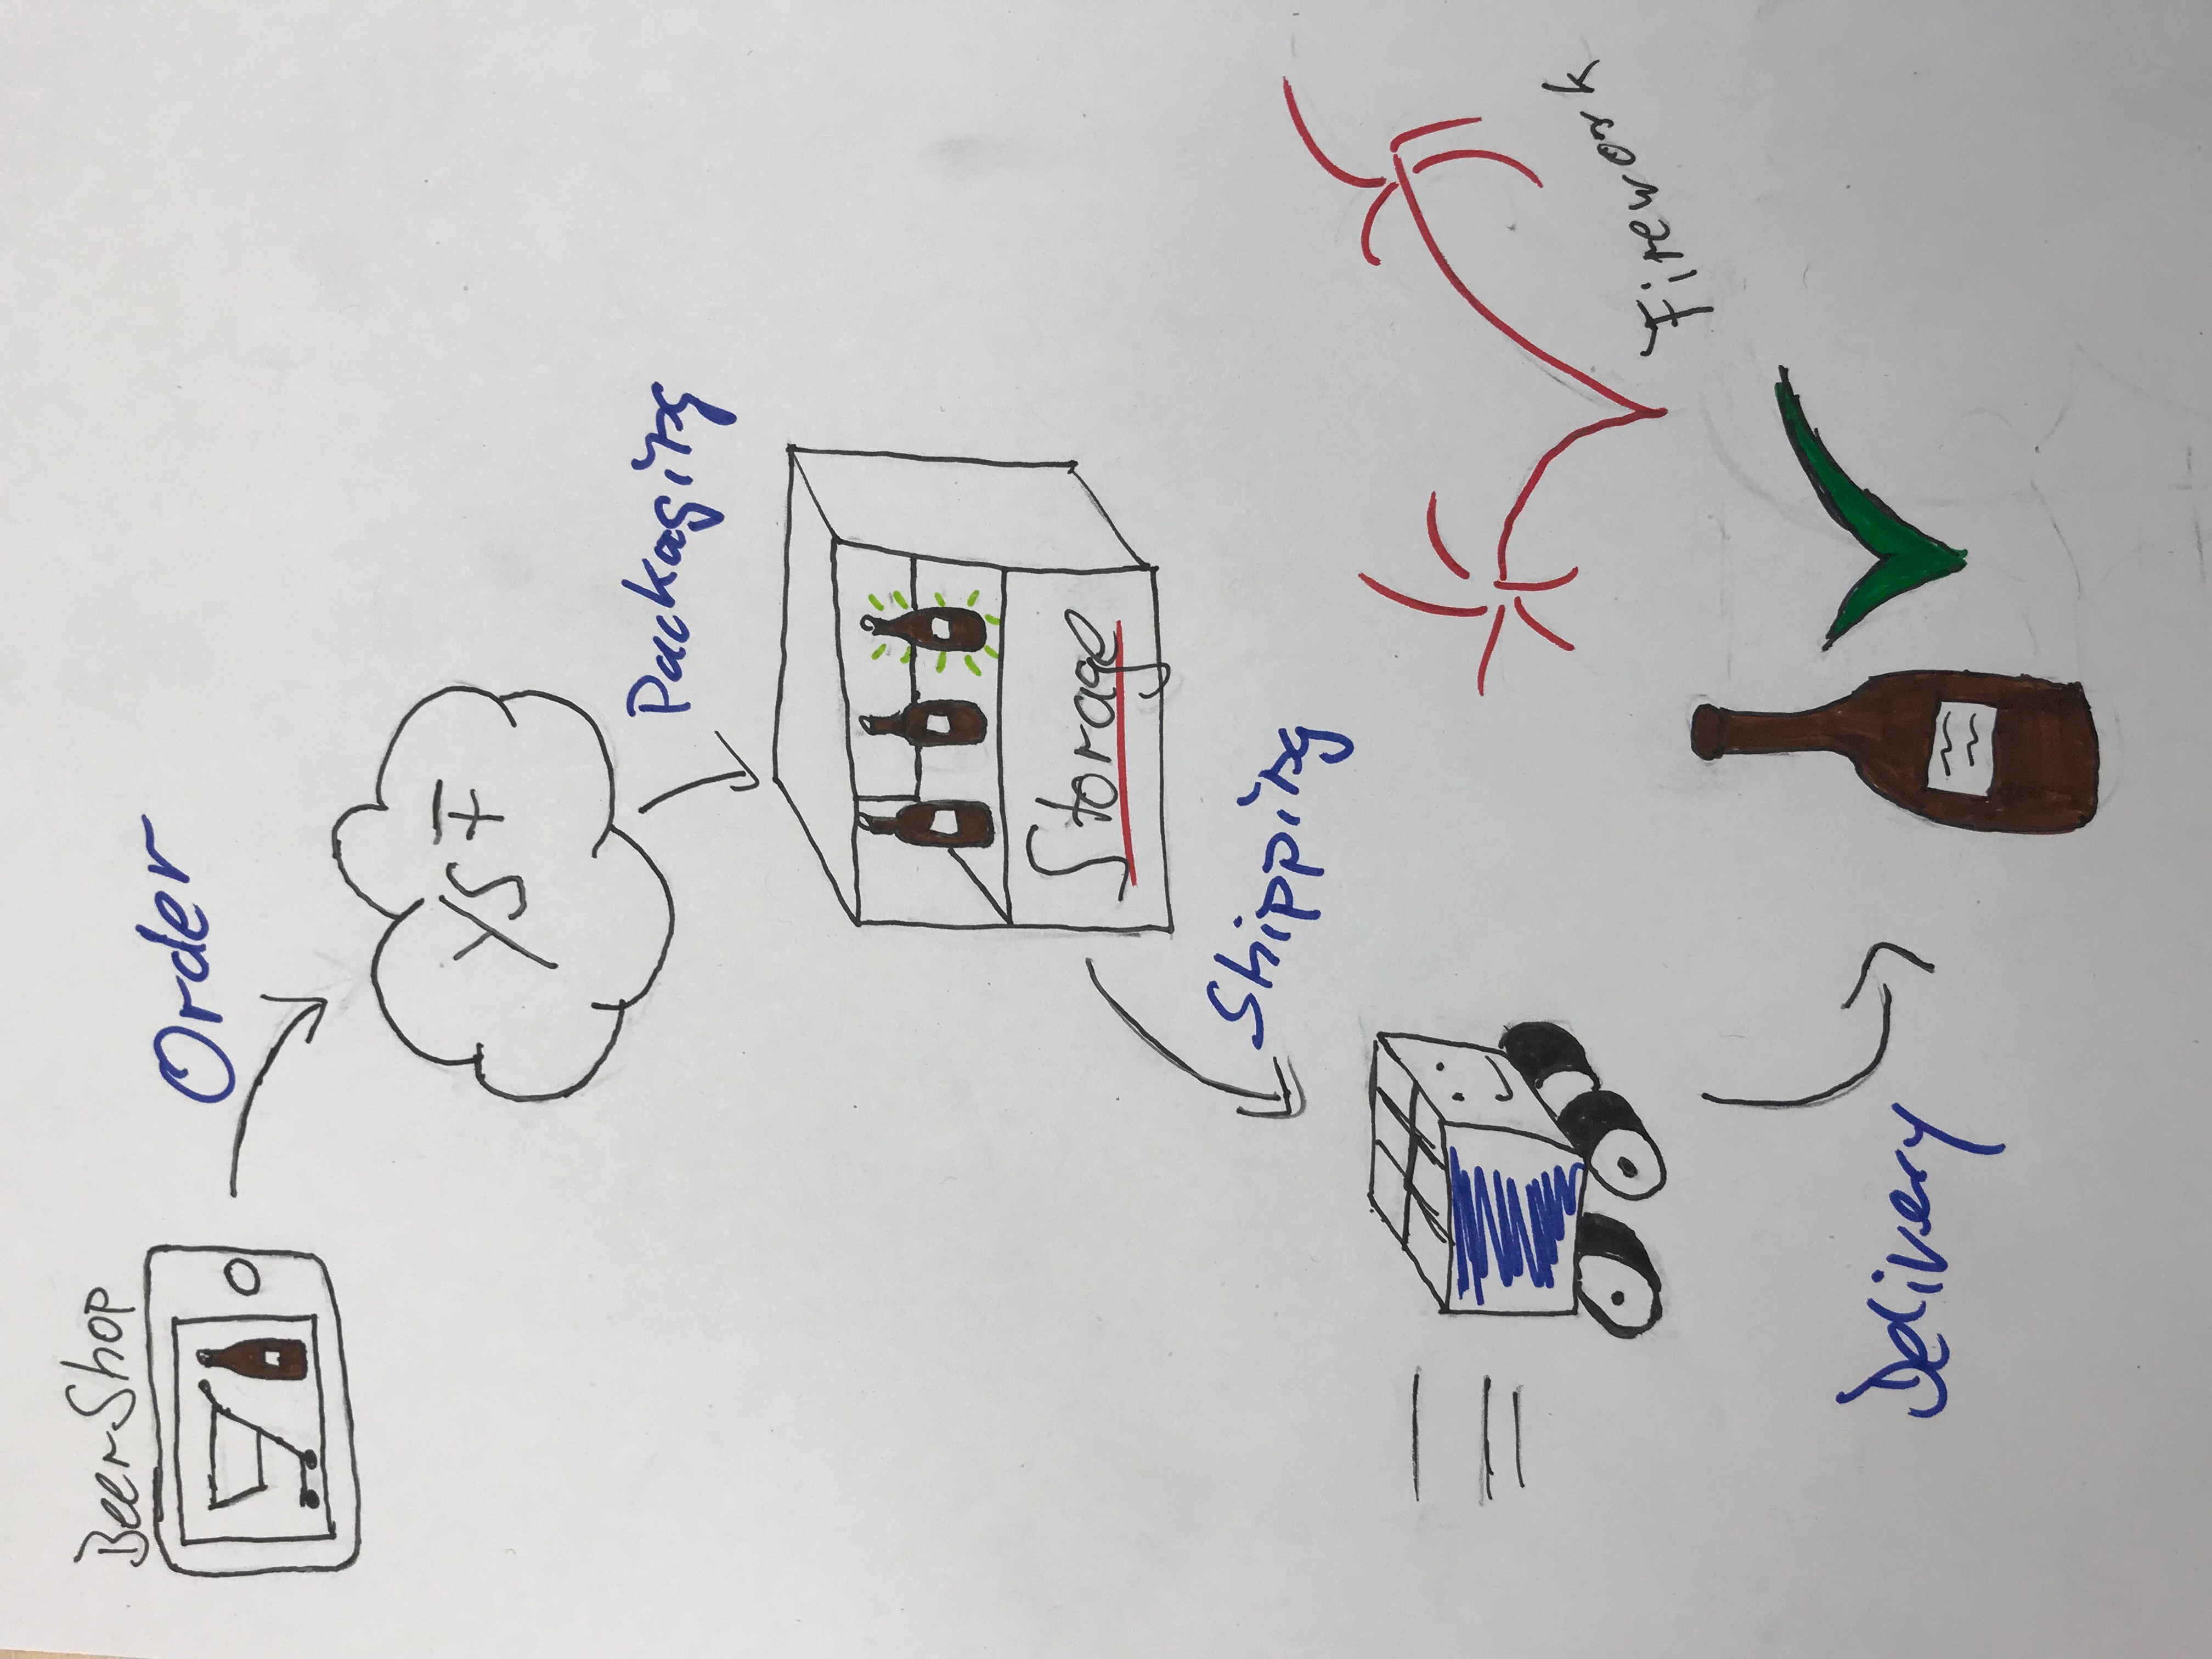 BeerShop
Order
YSF
Packaging
Storage
Shipping
Firework
Delivery